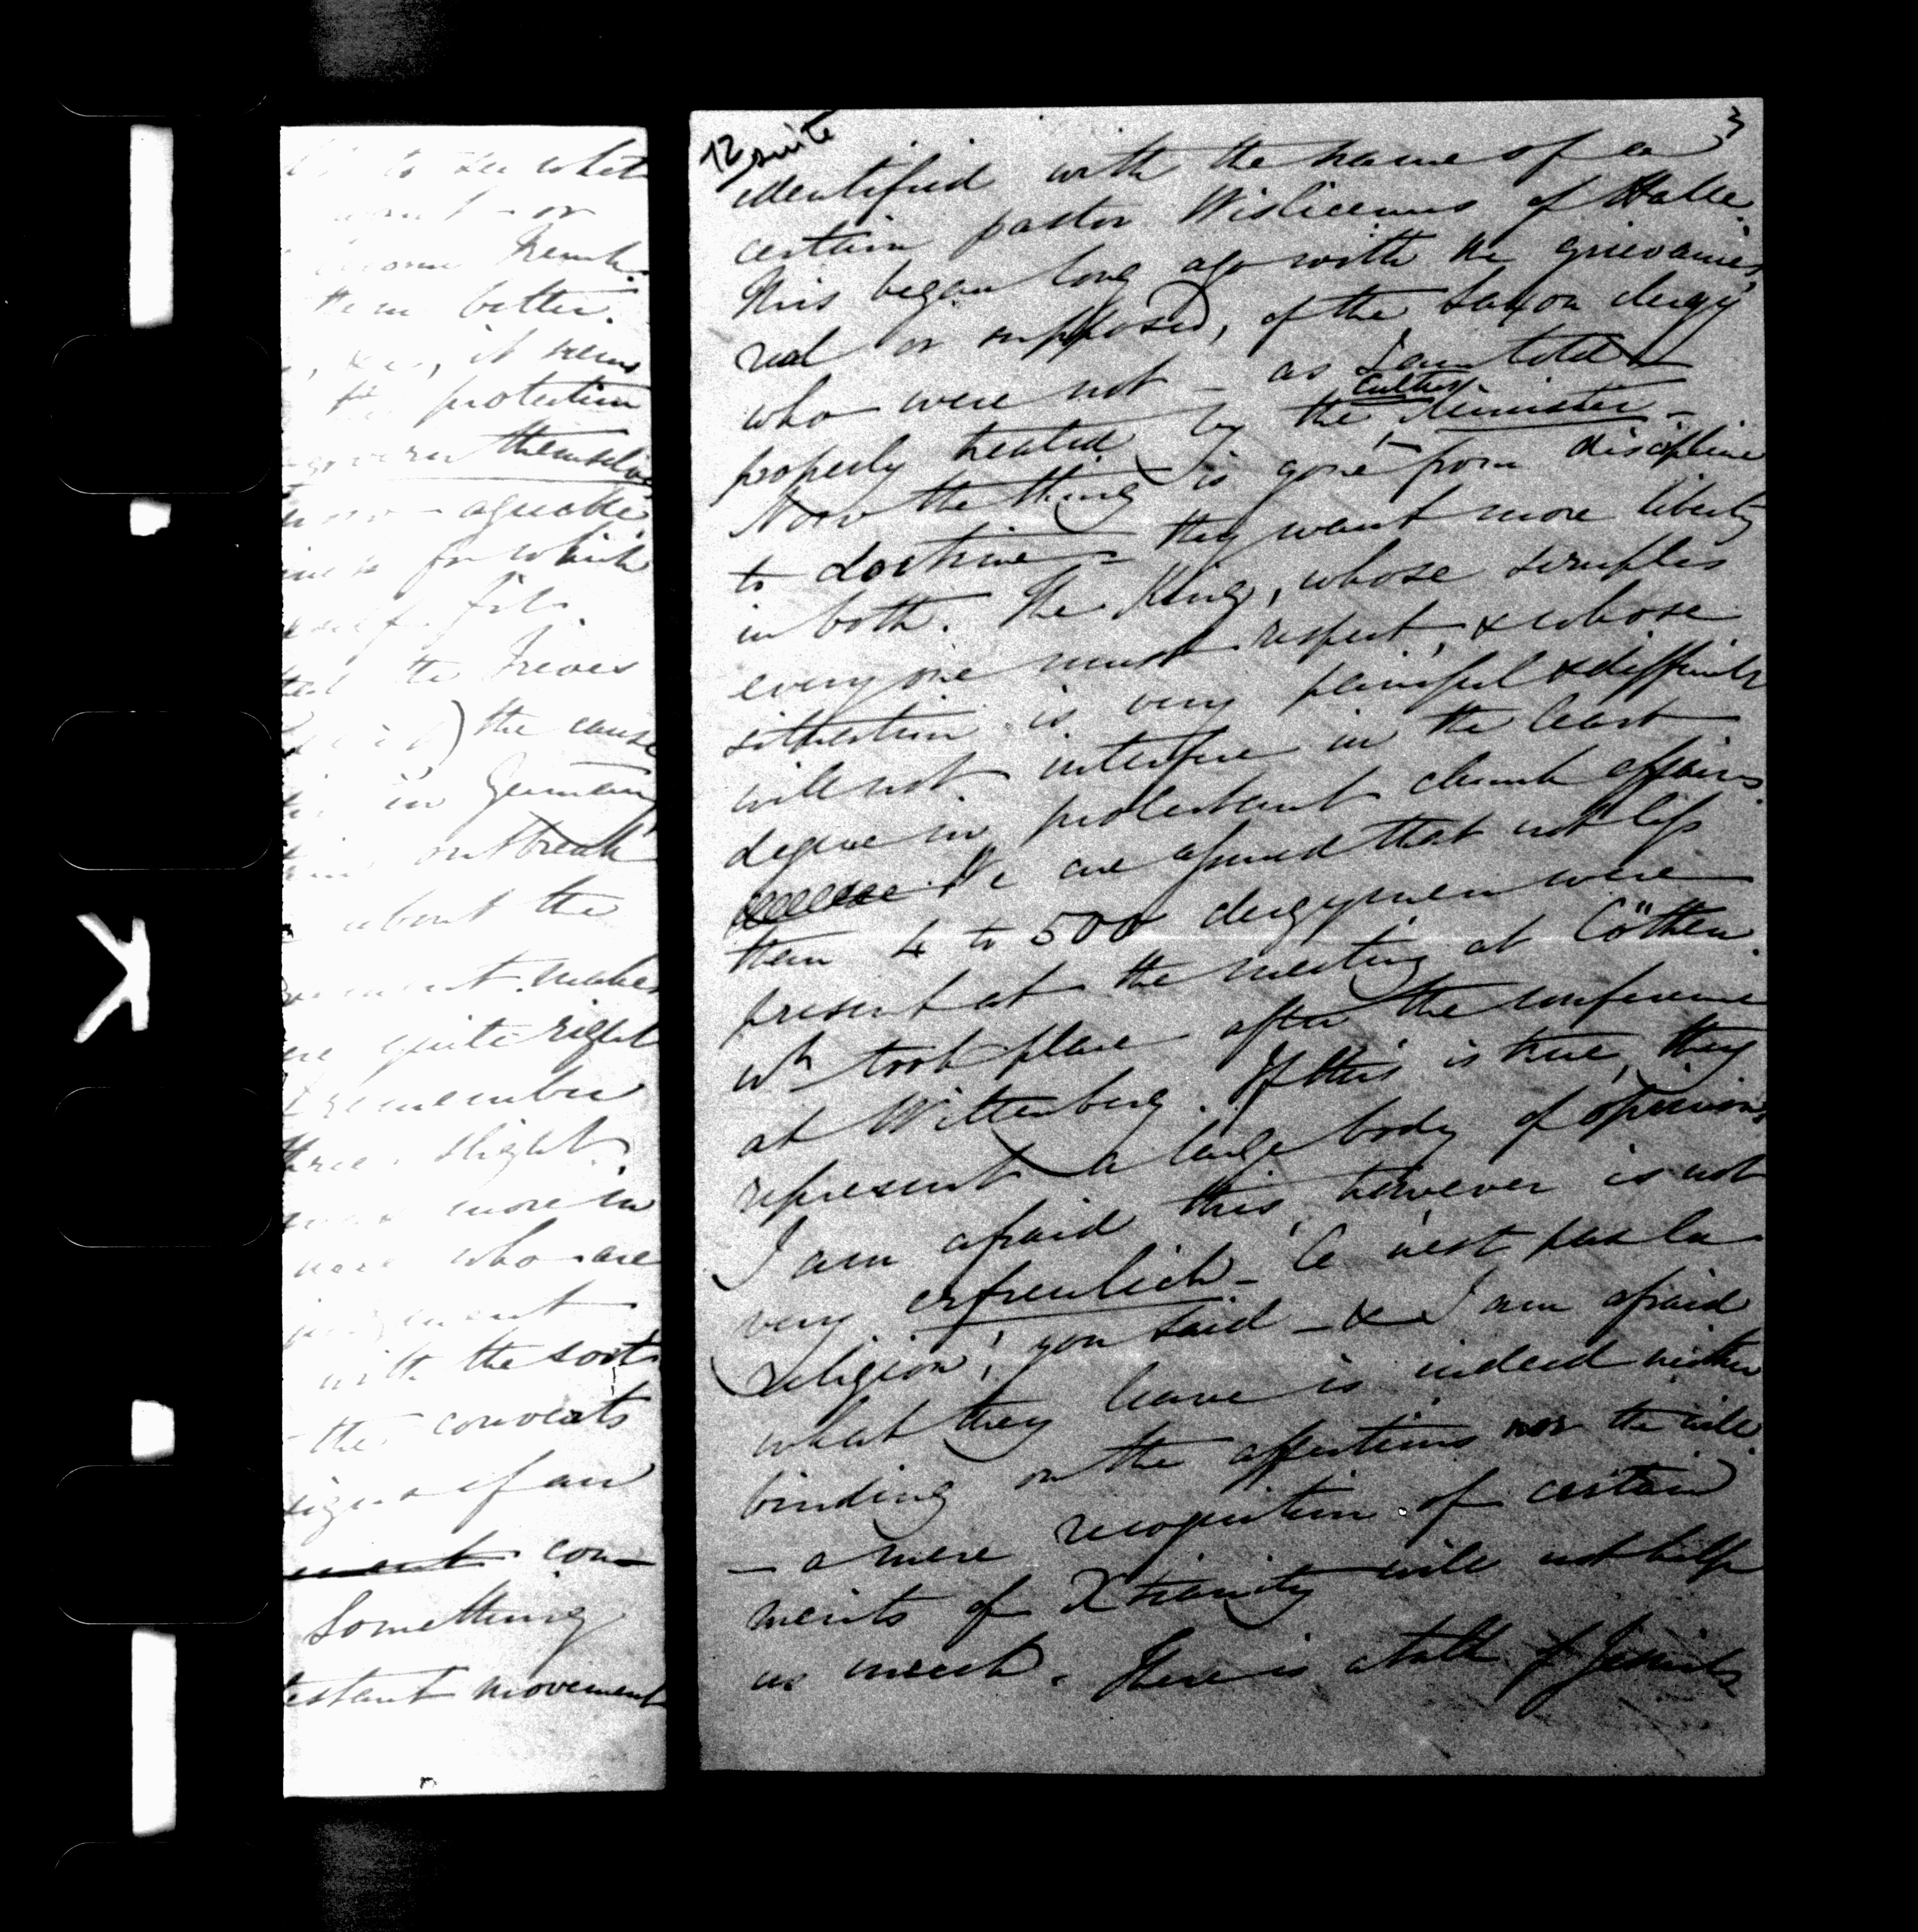 to see what
want - or
French.
them better.
it seems
the protection
govern themselves
agreable
for which
fit.
the Treves
) the cause
in Germany
outbreak
about the
makes
quite right
remember
three slight
more in
who are
with the sort
the converts
signs of an
con-
Something
testant movement
12 suite
3
identified with the name of a
certain pastor Wislicenus of Halle.
This began long ago with the grievances,
real or supposed, of the Saxon clergy
who were not - as I am told
Cultus-
properly treated by the Minister -
Now the thing is gone from discipline
to doctrine - they want more liberty
in both. The King, whose scruples
every one must respect, & whose
situation is very painful & difficult
will not interfere in the least
degree in protestant church affairs.
We are assured that not less
than 4 to 500 clergymen were
present at the meeting at Cöthen
wh took place after the conference
at Wittenberg. If this is true, they
represent a large body of opinions
I am afraid this, however is not
very erfreulich - 'Ce n'est pas la
religion', you said - & I am afraid
what they leave is indeed neither
binding on the affections nor the will.
- a mere recognition of certain
merits of Xtianity will not help
us much. There is a talk of Jesuits